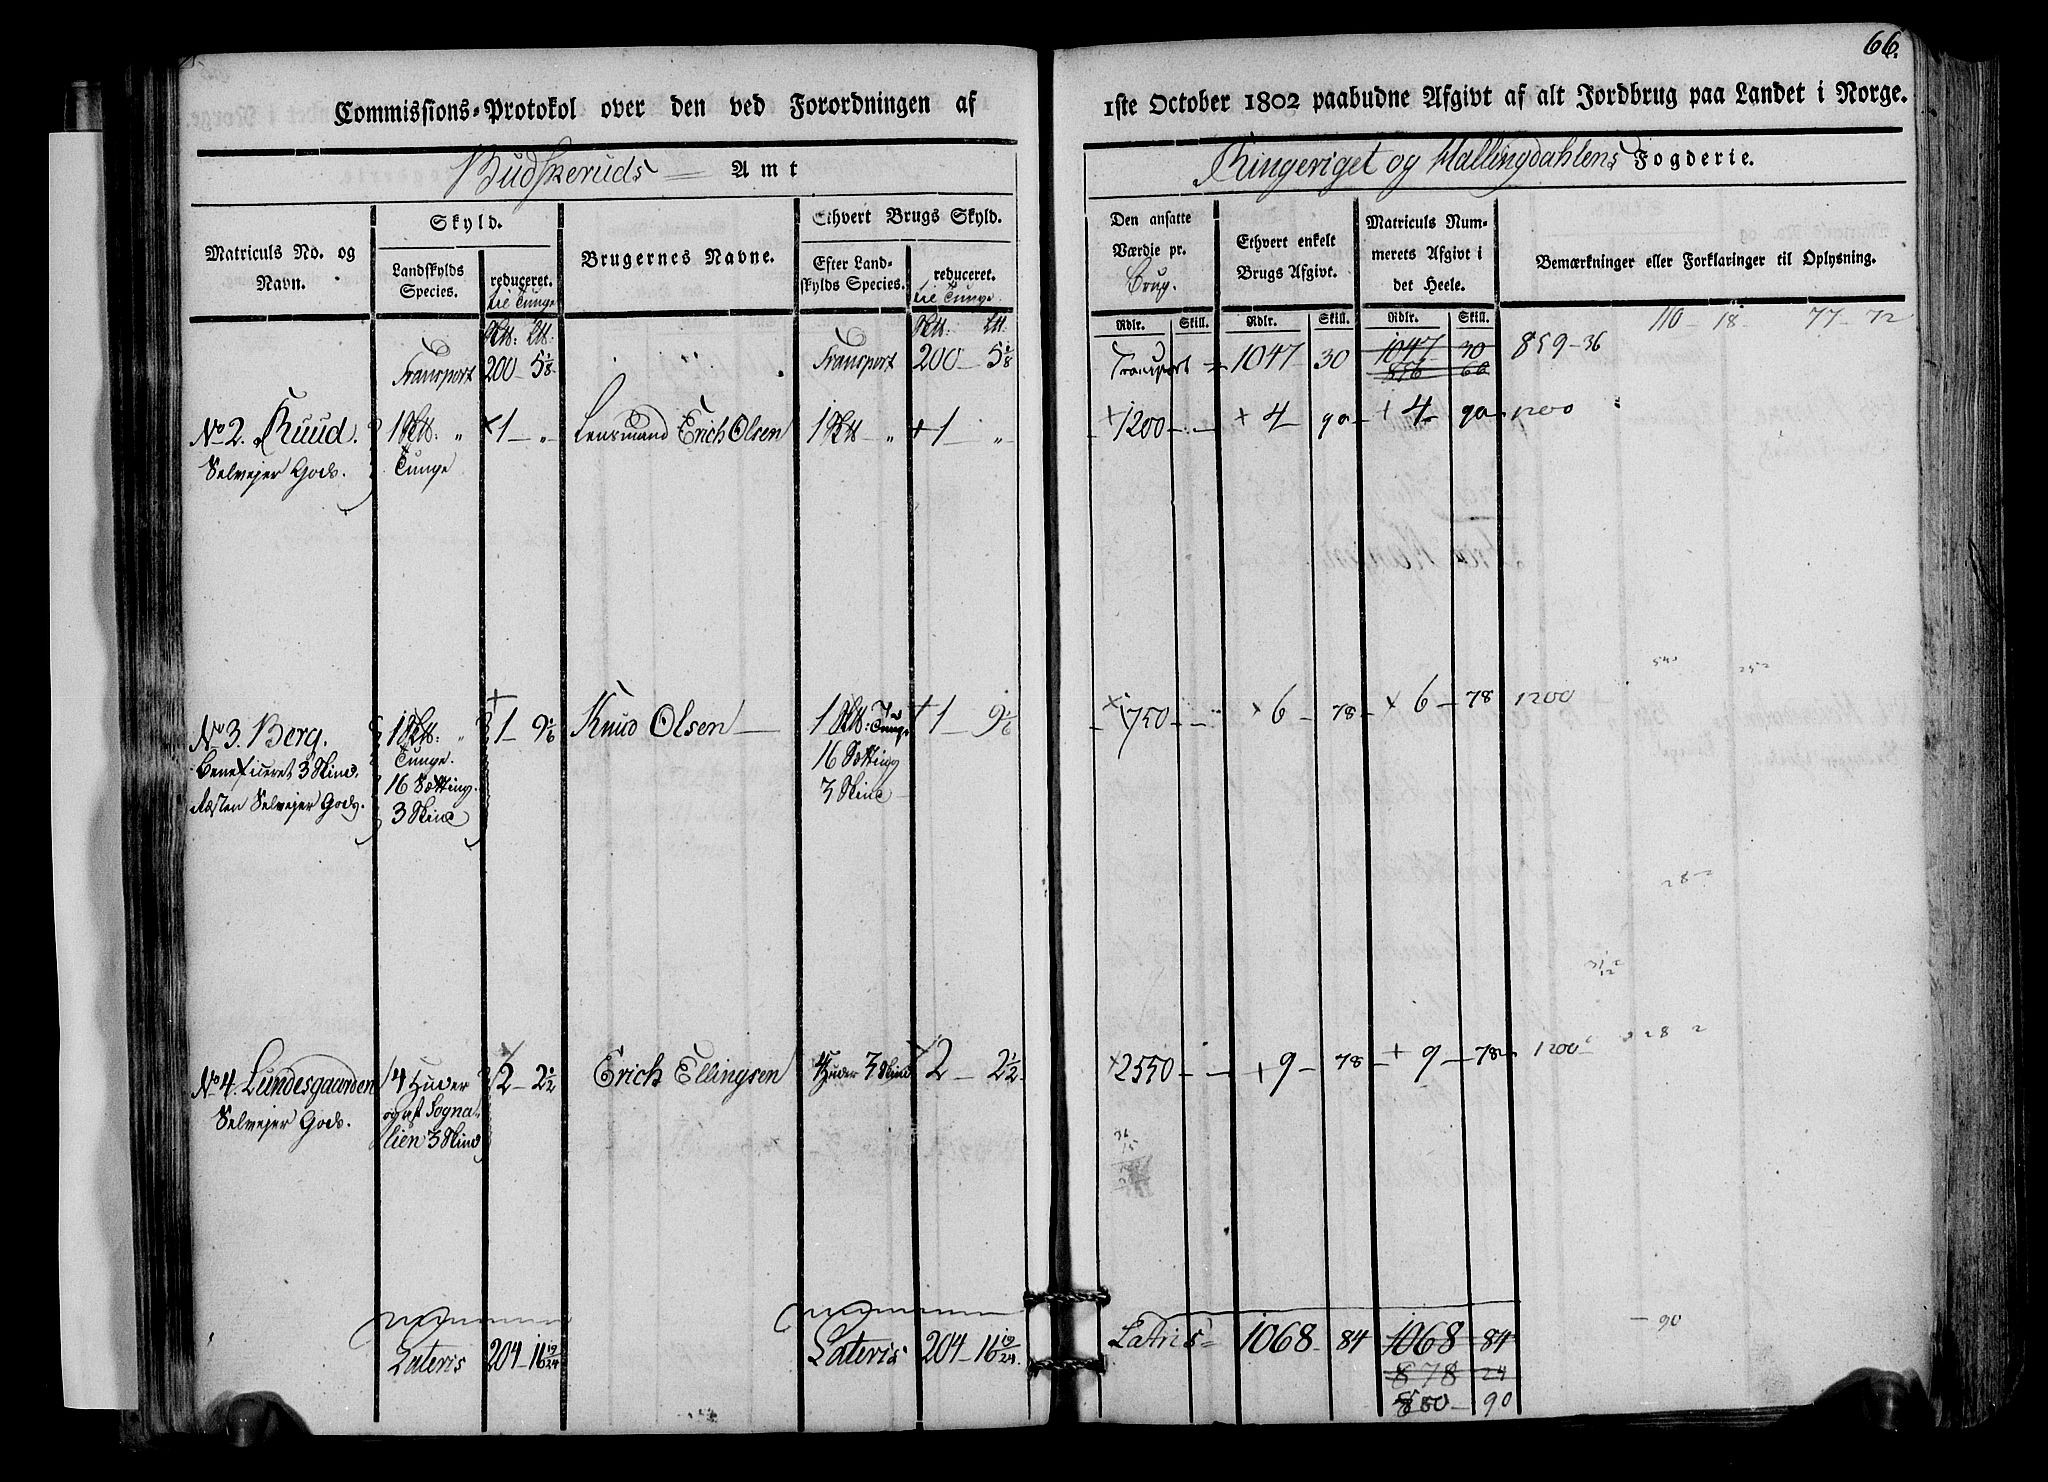 66.
Commissions-Protokol over den ved Forordningen af 1ste October 1802 paabudne Afgivt af alt Jordbrug paa Landet i Norge.
Budskeruds Amt
Ringeriget og Hallingdahlens Fogderie.
Matriculs No. og Navn.
Skyld.
Landskylds Species.
reduceret. til Tunge
Brugernes Navne.
Ethvert Brugs Skyld.
Efter Landskylds Species.
reduceret. til Tunge
Den ansatte Værdie pr. Brug.
Ethvert enkelt Brugs Afgivt.
Matriculs Nummerets Afgivt i det Heele.
Bemærkninger eller Forklaringer til Oplysning.
Rdlr. Skill. Rdlr. Skill. Rdlr. Skill.
110 - 18 - 77 - 72
Transport 200 - 5 1/8 Transport 200 - 5 1/8 Transport 1047 30 1047 30 859 - 36
856 60
No 2. Ruud. 1 " 1 - " Lensmand Erich Olsen 1 " + 1 " + 1200 - - + 4 90 + 4 90 1200
Selvejer Gods. Tunge
No 3. Berg. 1 " 1 - 9 1/6 Knud Olsen 1 Tunge + 1 9 1/6 1750 - - × 6 - 78 × 6 - 78 1200
Beneficeret 3 Skind. Tunge. 16 Sætting
Resten Selvejer Gods. 16 Sætting. 3 Skind
3 Skind
No 4. Lundesgaarden 4 Huder 2 - 2 1/2 Erich Ellingsen 4 Huder 3 Skind 2 - 2 1/2 2550 - - + 9 - 78 + 9 - 78 1200
Selvejer Gods. og af Sogna
Lien 3 Skind
- 90
Lateris 204 - 16 19/24 Lateris 204 - 16 19/24 Latris 1068 - 84 1068 84
878 24
880 - 90